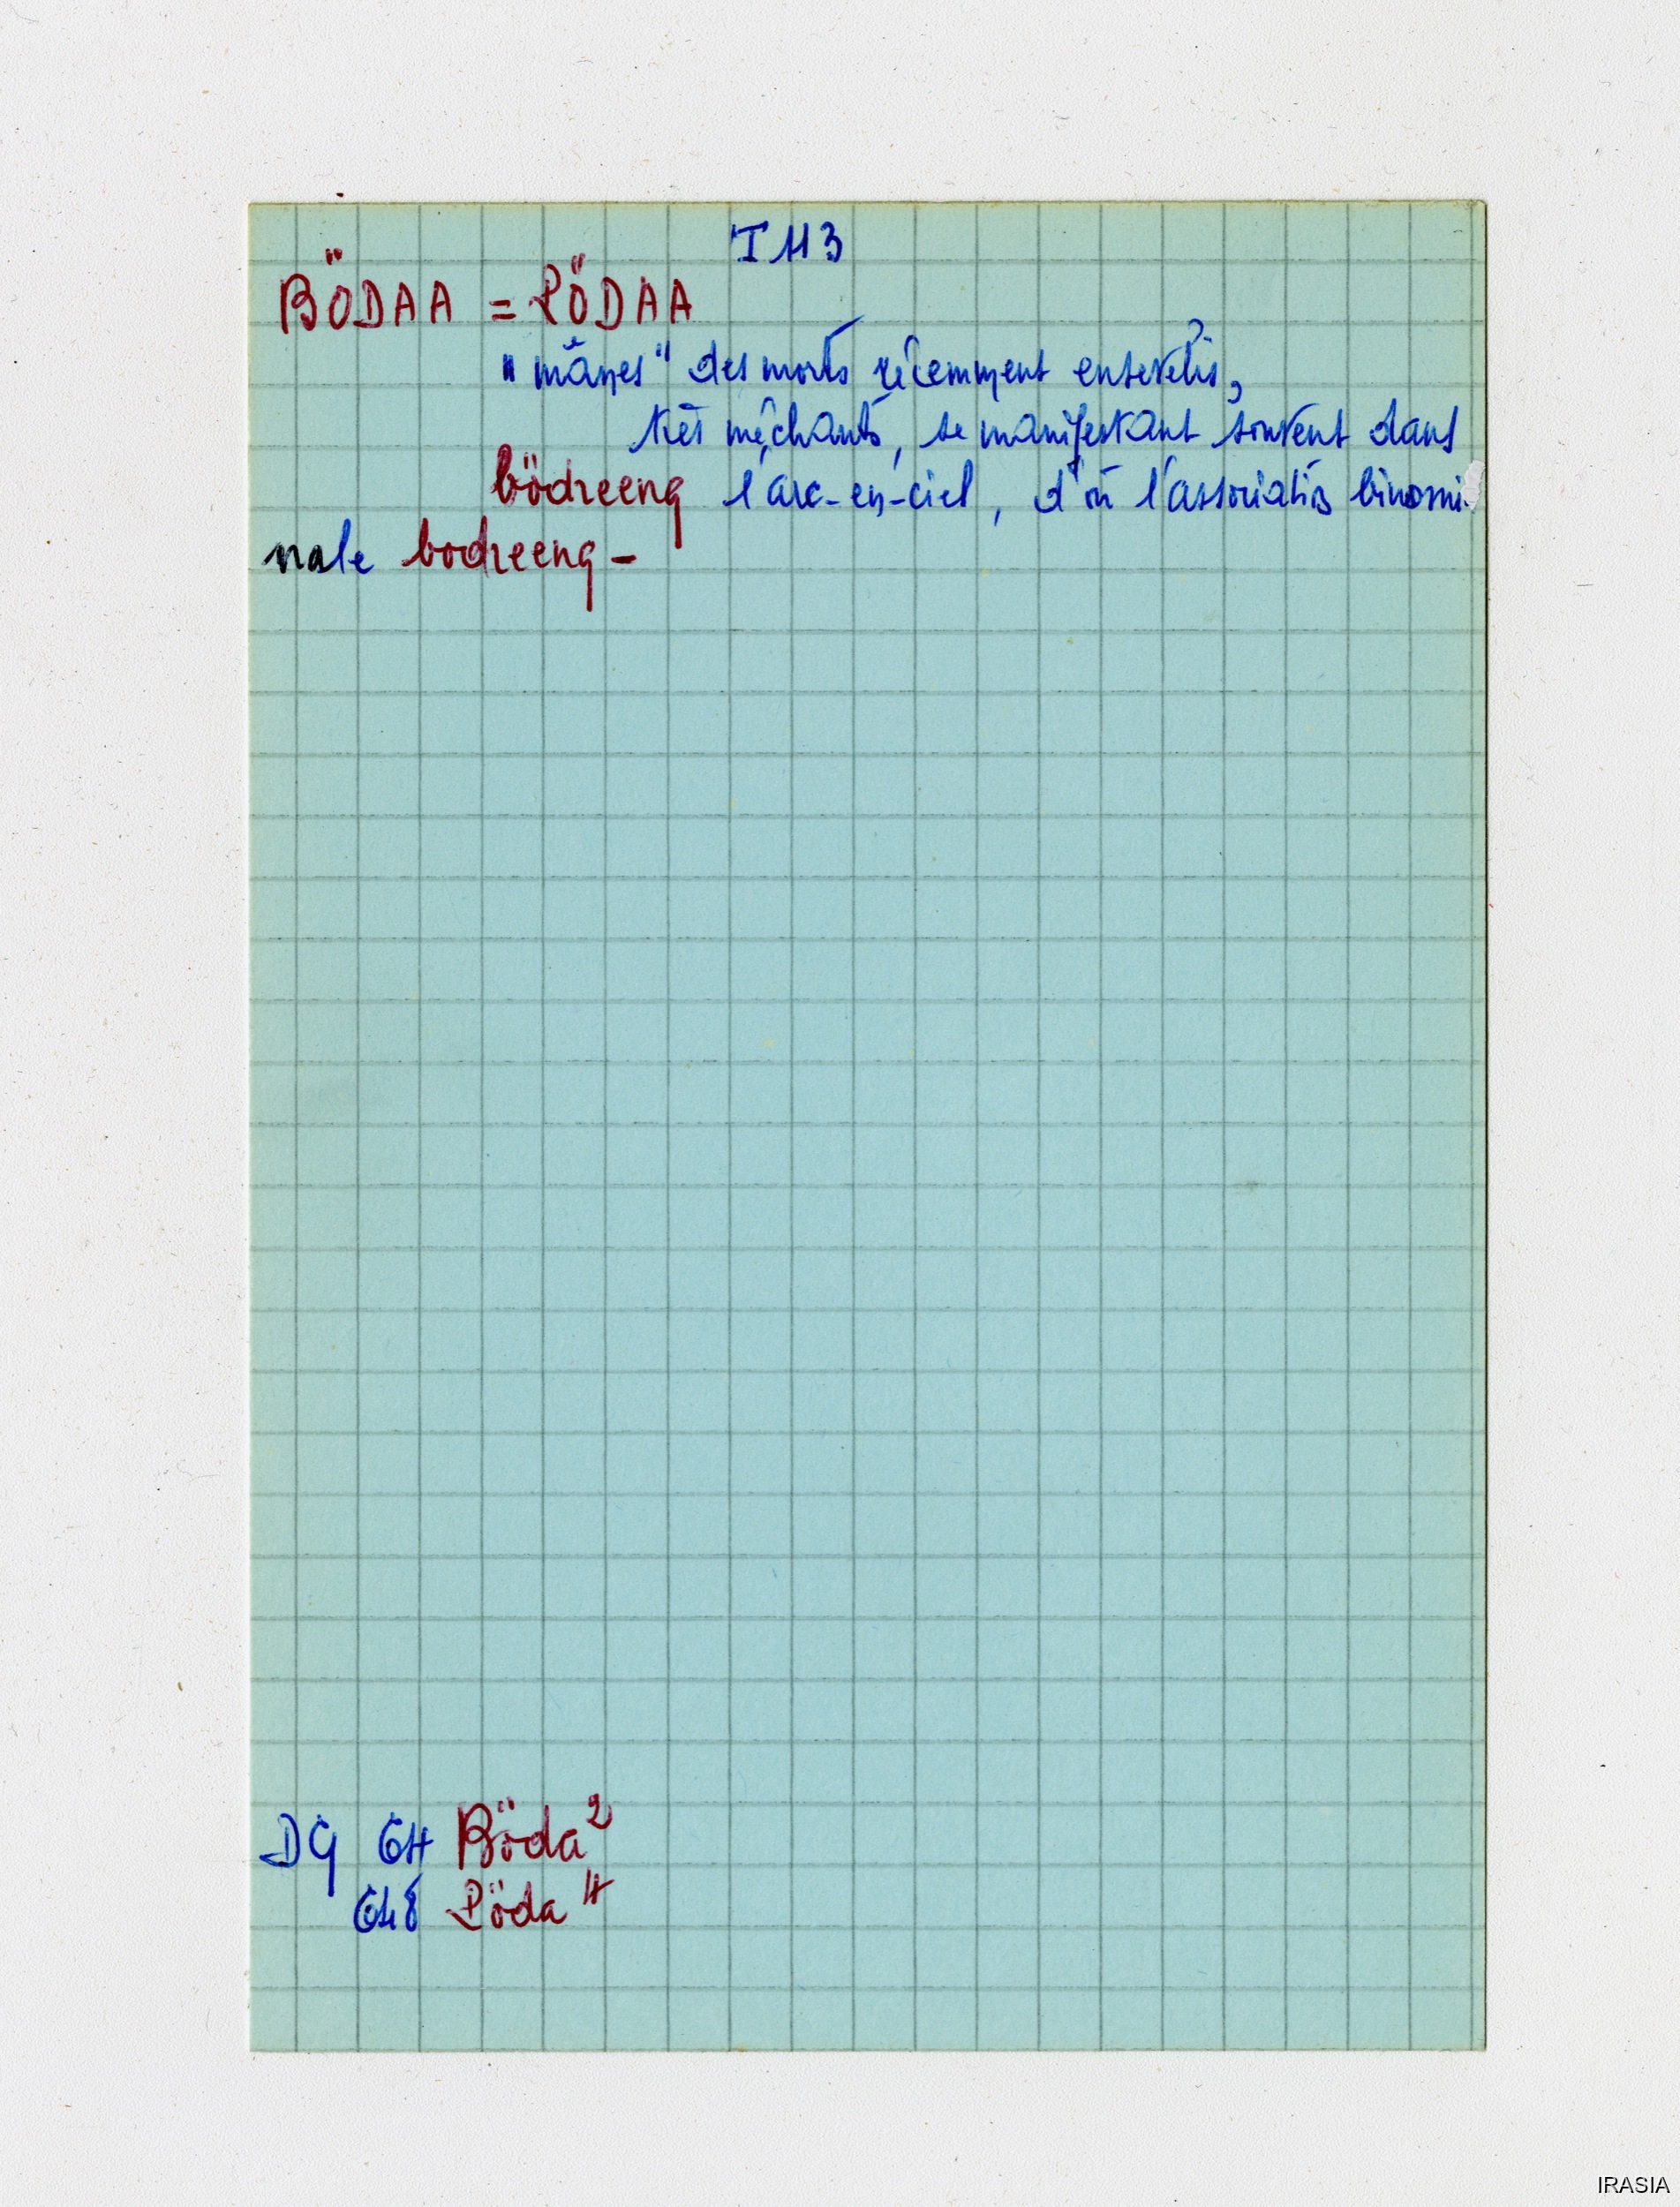 I 43
BÖDAA = PÖDAA
"mânes" des morts récemment ensevelis,
très méchants, se manifestant souvent dans
bödreeng l'arc-en-ciel, d'où l'association binomi
nale bodreeng -
DG 64 Böda²
648 Pöda⁴
IRASIA